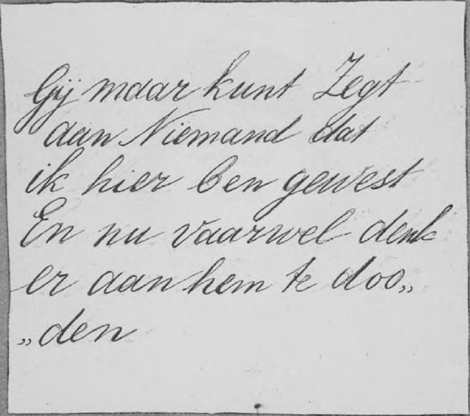 Gij maar kunt Zegt
aan Niemand dat
ik hier ben gewest
En nu vaarwel denk
er aan hem te doo„
„den